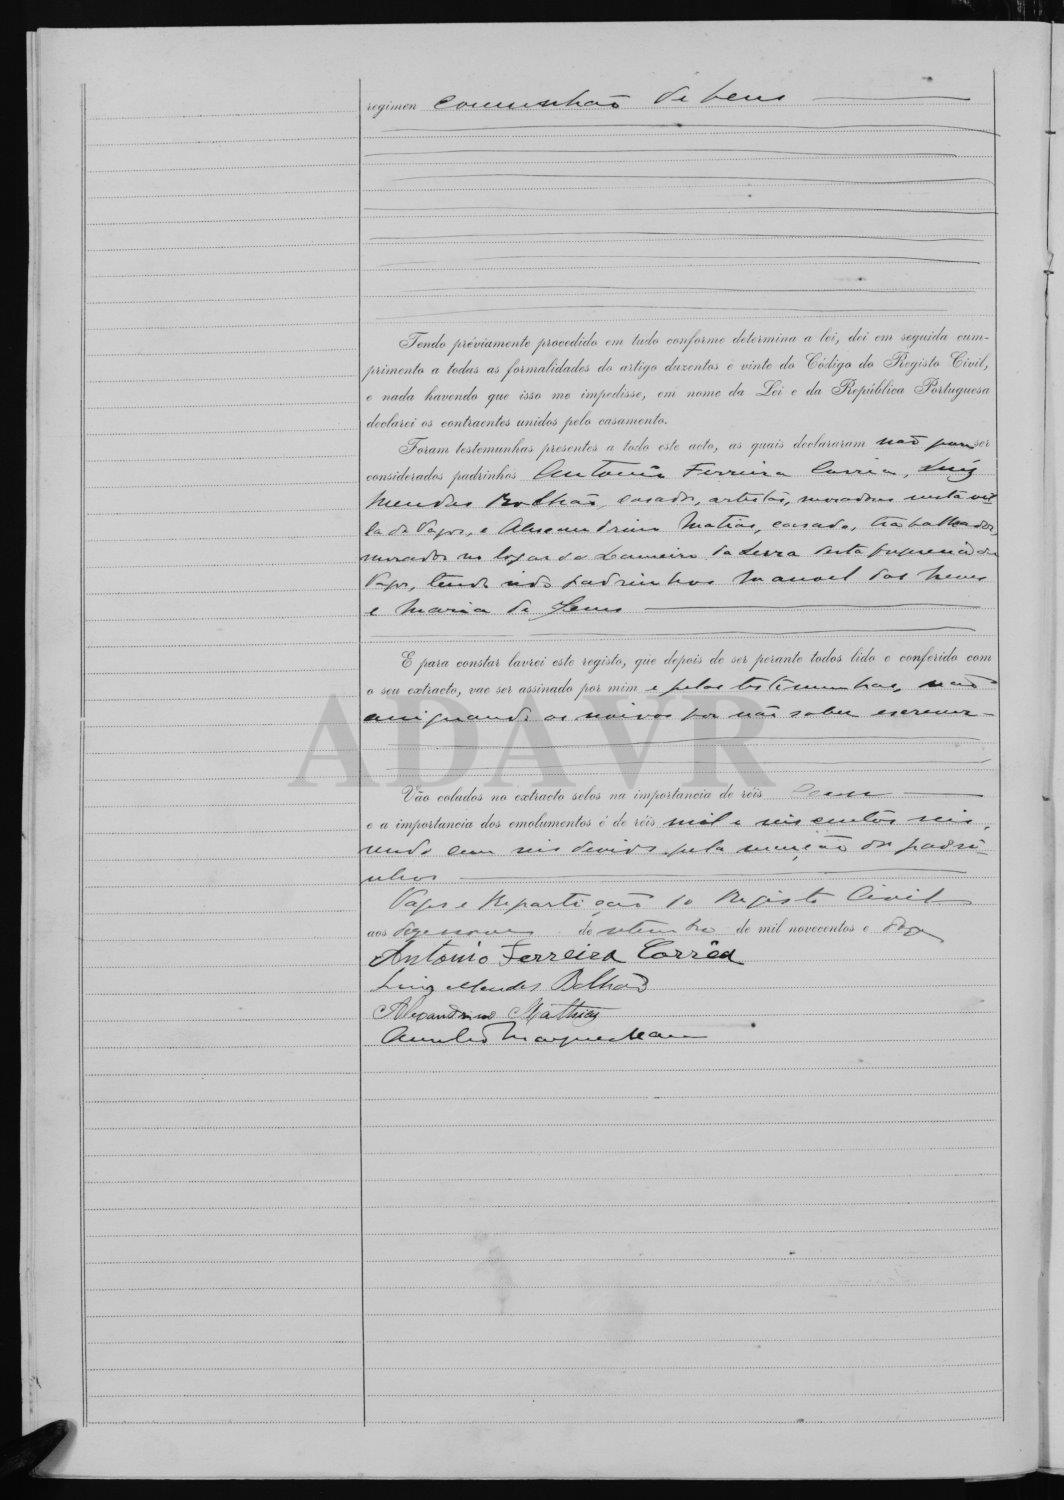 regimen comunhão de bens
Tendo préviamente procedido em tudo conforme determina a lei, dei em seguida cum-
primento a todas as formalidades do artigo duzentos e vinte do Código do Registo Civil,
e nada havendo que isso me impedisse, em nome da Lei e da República Portuguesa
declarei os contraentes unidos pelo casamento.
Foram testemunhas presentes a todo este acto, as quais declararam não ser
considerados padrinhos Antonio Ferreira Corrêa, Luiz
Mendes Bolhão, casados, artistas, moradores nesta vil-
la de Vagos, e Alexandrino Matias, casado, trabalhador,
morador no logar da Lameiro da Serra desta freguesia de
Vagos, tendo sido padrinhos Manoel das Neves
e Maria de Jesus
E para constar lavrei este registo, que depois de ser perante todos lido e conferido com
o seu extracto, vae ser assinado por mim e pelas testemunhas, não
assignando os noivos por não saber escrever
ADAVR
Vão colados no extracto selos na importancia de réis cem
e a importancia dos emolumentos é de réis mil e seiscentos reis,
sendo cem reis devidos pela menção de padri-
nhos
Vagos e Repartição do Registo Civil
aos dezenove de setembro de mil novecentos e doze
Antonio Ferreira Corrêa
Luiz Mendes Bolhão
Alexandrino Mathias